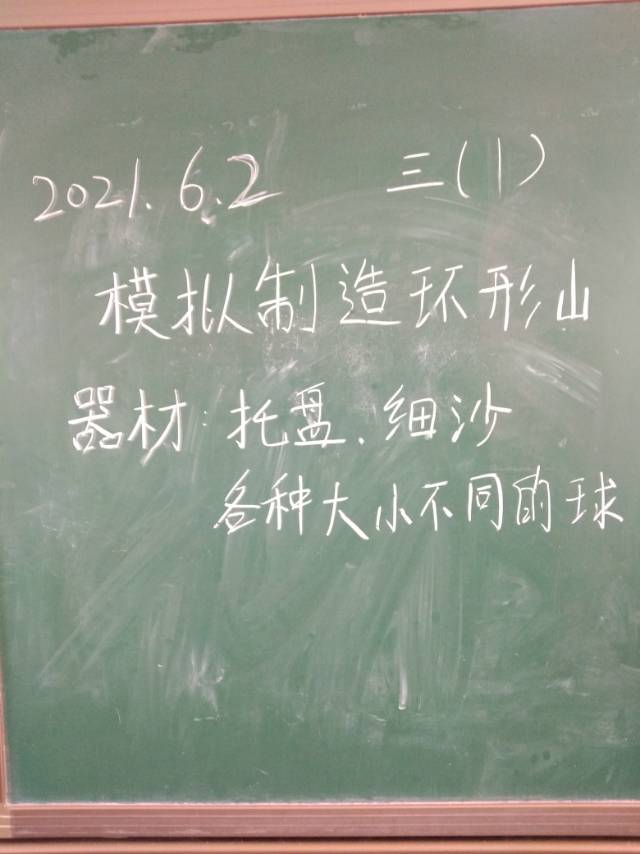 2021.6.2 三(1)
模拟制造环形山
器材:托盘.细沙
各种大小不同的球